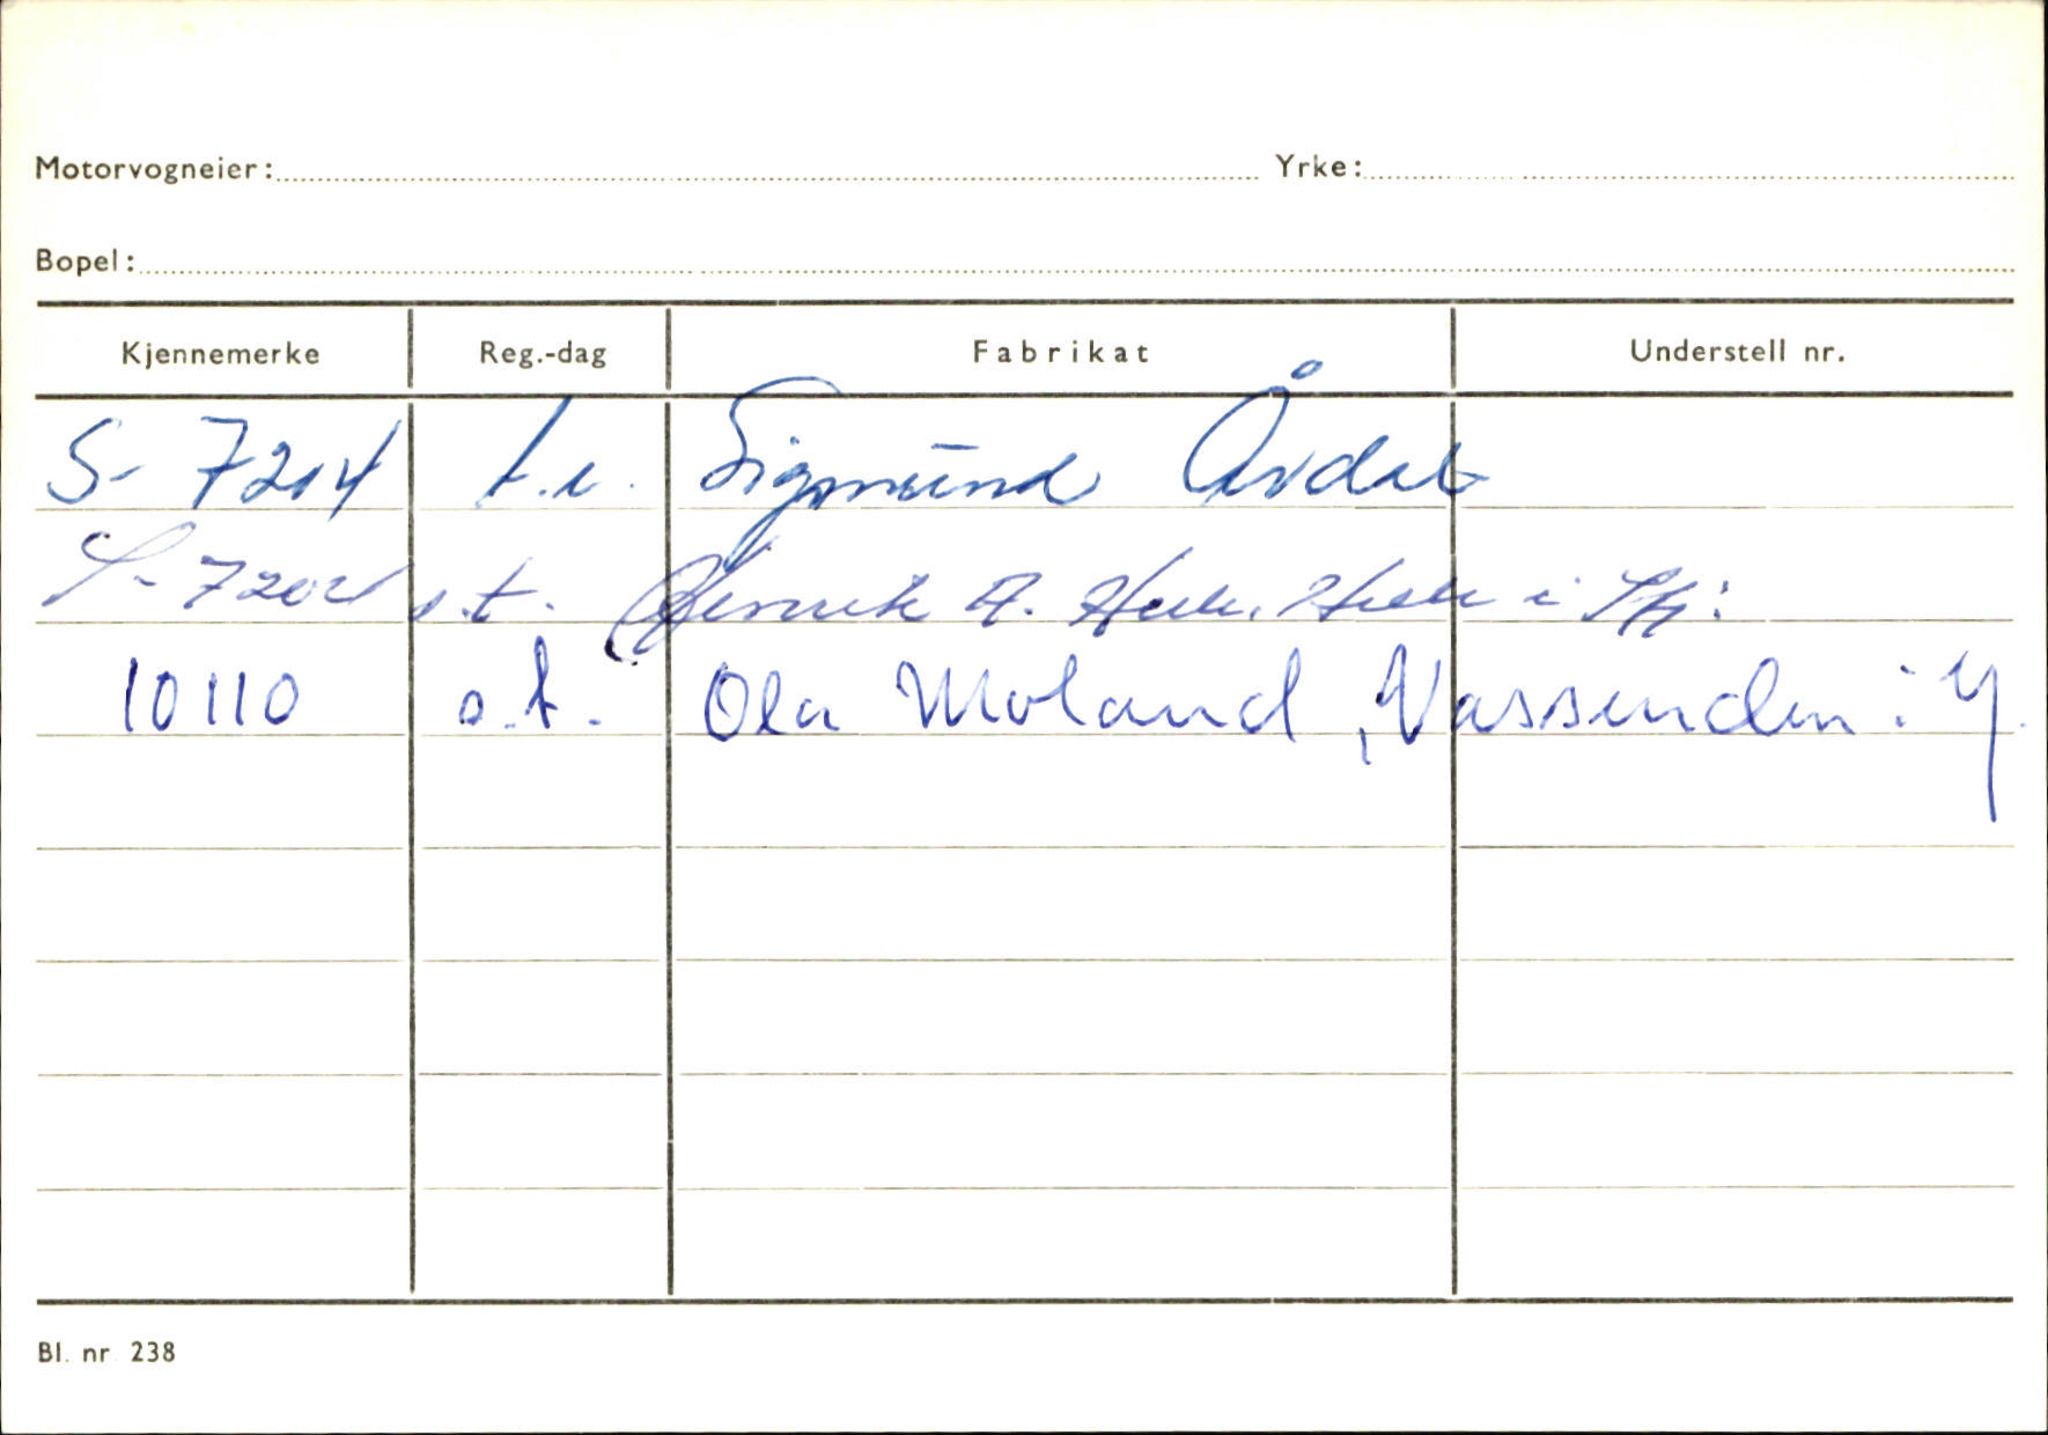 Motorvogneier: Yrke:
Bopel:
Kjennemerke Reg.-dag Fabrikat Understell nr.
S- 7204 Sigmund Årdal
S- 7204 o.t. A. i
10110 o.t. Ola Moland, Vassenden i
Bl. nr 238